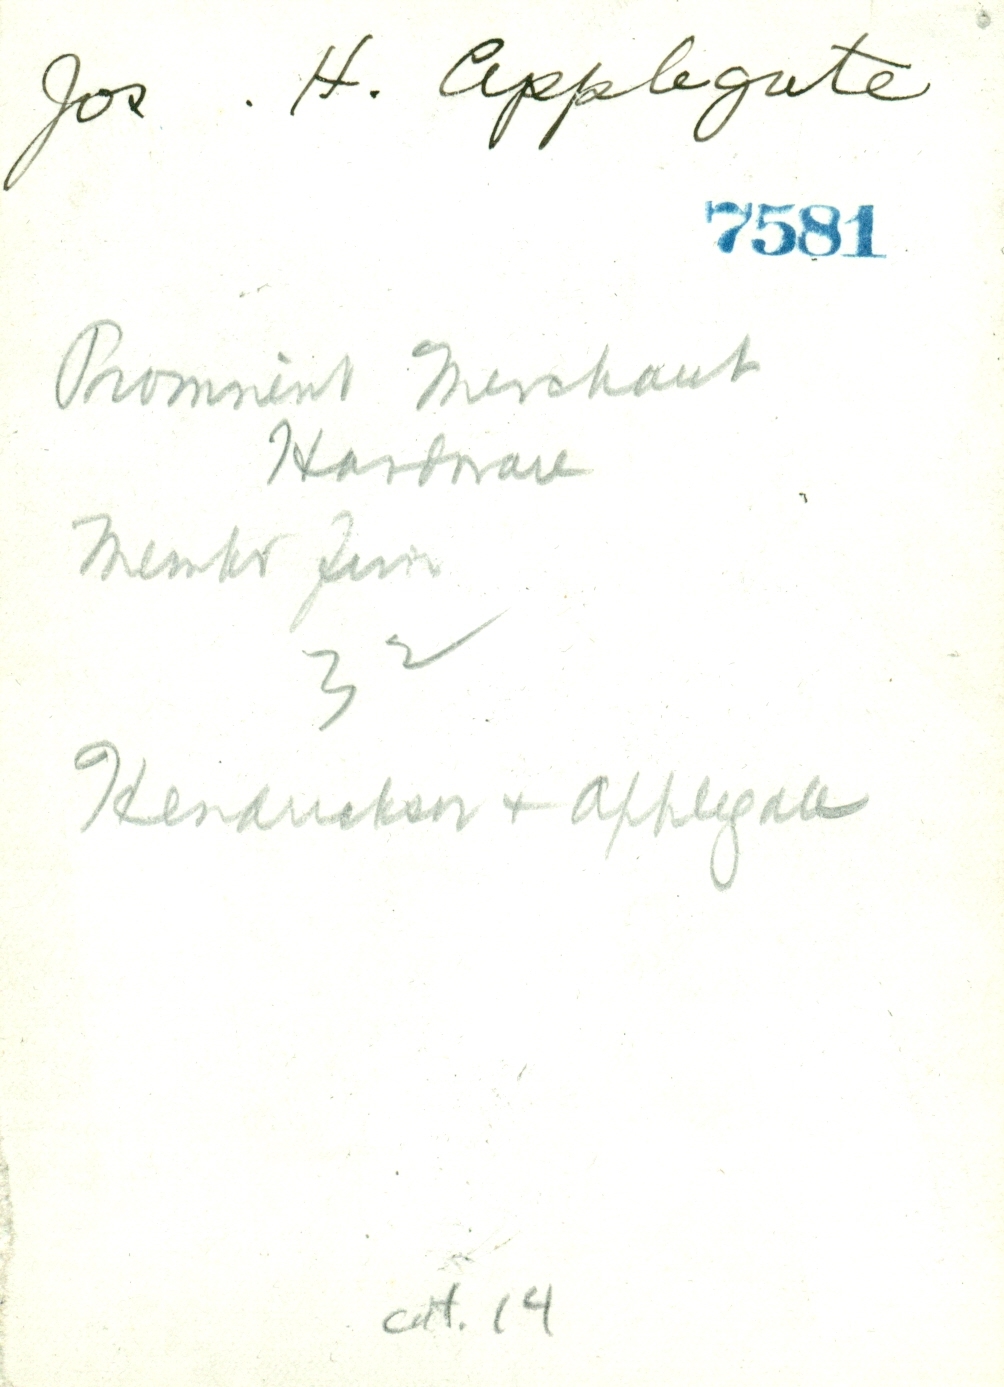 Jos . H. Applegate
7581
Prominent Merchant
Hardware
Member Firm
3 2
Hendrickson + Applegate
cat. 14